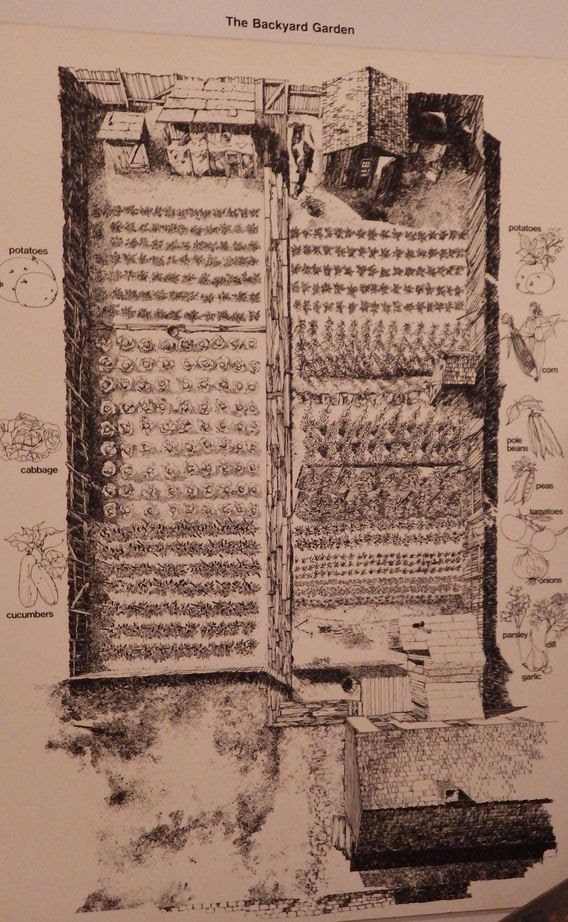 The Backyard Garden
potatoes
cabbage
cucumbers
potatoes
corn
pole
beans
peas
tomatoes
onions
parsley
dill
garlic